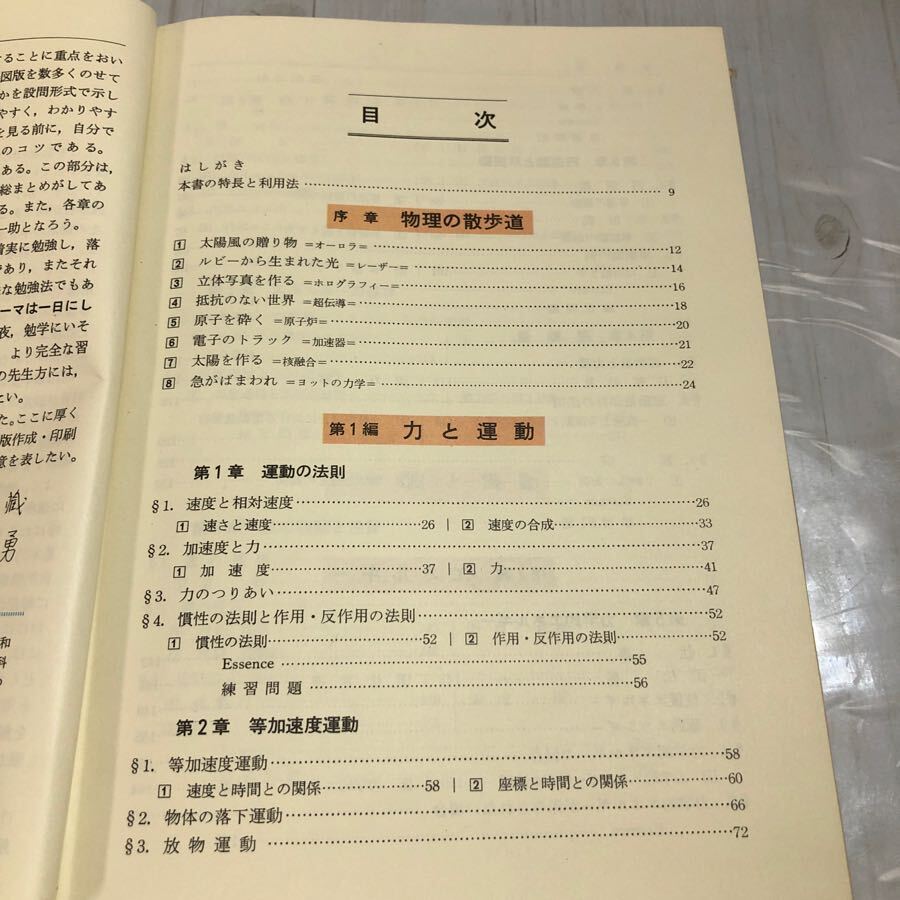 ることに重点をおい
図版を数多くのせて
かを設問形式で示し
やすく，わかりやす
を見る前に，自分で
のコツである。
ある。この部分は，
総まとめがしてあ
る。また，各章の
一助となろう。
着実に勉強し，落
であり，またそれ
な勉強法でもあ
ーマは一日にし
夜，勉学にいそ
，より完全な習
の先生方には，
たい。
た。ここに厚く
版作成・印刷
意を表したい。
蔵
勇
和
科
目次
はしがき
本書の特長と利用法……9
序章 物理の散歩道
1 太陽風の贈り物 =オーロラ=……12
2 ルビーから生まれた光 =レーザー=……14
3 立体写真を作る =ホログラフィー=……16
4 抵抗のない世界 =超伝導=……18
5 原子を砕く =原子炉=……20
6 電子のトラック =加速器=……21
7 太陽を作る =核融合=……22
8 急がばまわれ =ヨットの力学=……24
第1編 力と運動
第1章 運動の法則
§1. 速度と相対速度……26
1 速さと速度……26 | 2 速度の合成……33
§2. 加速度と力……37
1 加速度……37 | 2 力……41
§3. 力のつりあい……47
§4. 慣性の法則と作用・反作用の法則……52
1 慣性の法則……52 | 2 作用・反作用の法則……52
Essence……55
練習問題……56
第2章 等加速度運動
§1. 等加速度運動……58
1 速度と時間との関係……58 | 2 座標と時間との関係……60
§2. 物体の落下運動……66
§3. 放物運動……72